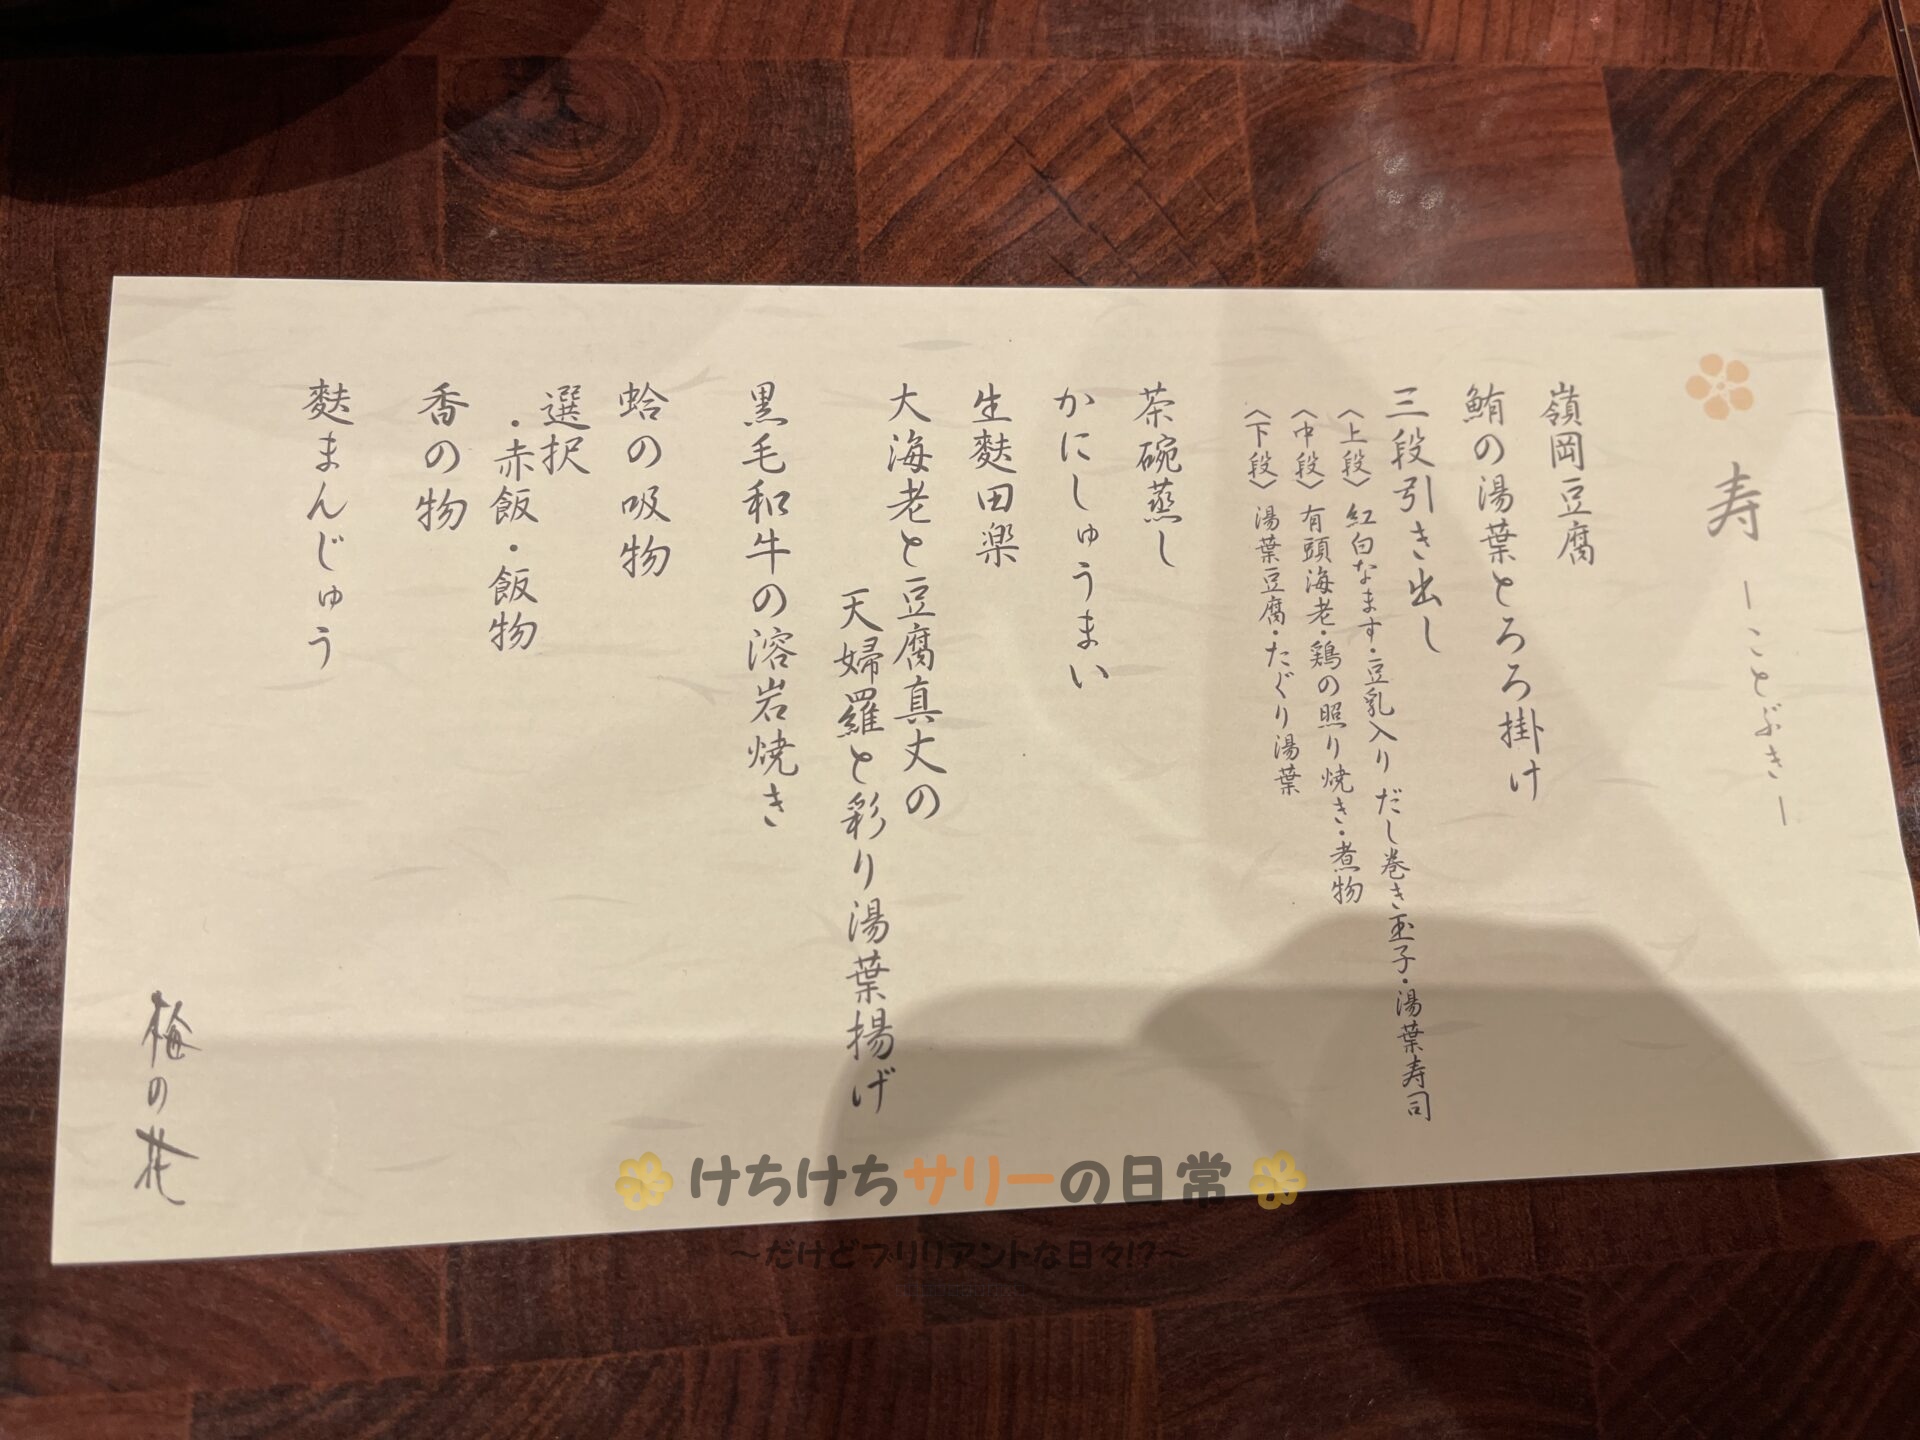 寿 ーことぶきー
嶺岡豆腐
鮪の湯葉とろろ掛け
三段引き出し
〈上段〉 紅白なます・豆乳入りだし巻き玉子・湯葉寿司
〈中段〉 有頭海老・鶏の照り焼き・煮物
〈下段〉 湯葉豆腐・たぐり湯葉
茶碗蒸し
かにしゅうまい
生麩田楽
大海老と豆腐真丈の
天婦羅と彩り湯葉揚げ
黒毛和牛の溶岩焼き
蛤の吸物
選択
・赤飯・飯物
香の物
麩まんじゅう
梅の花
けちけちサリーの日常
～だけどブリリアントな日々!?～